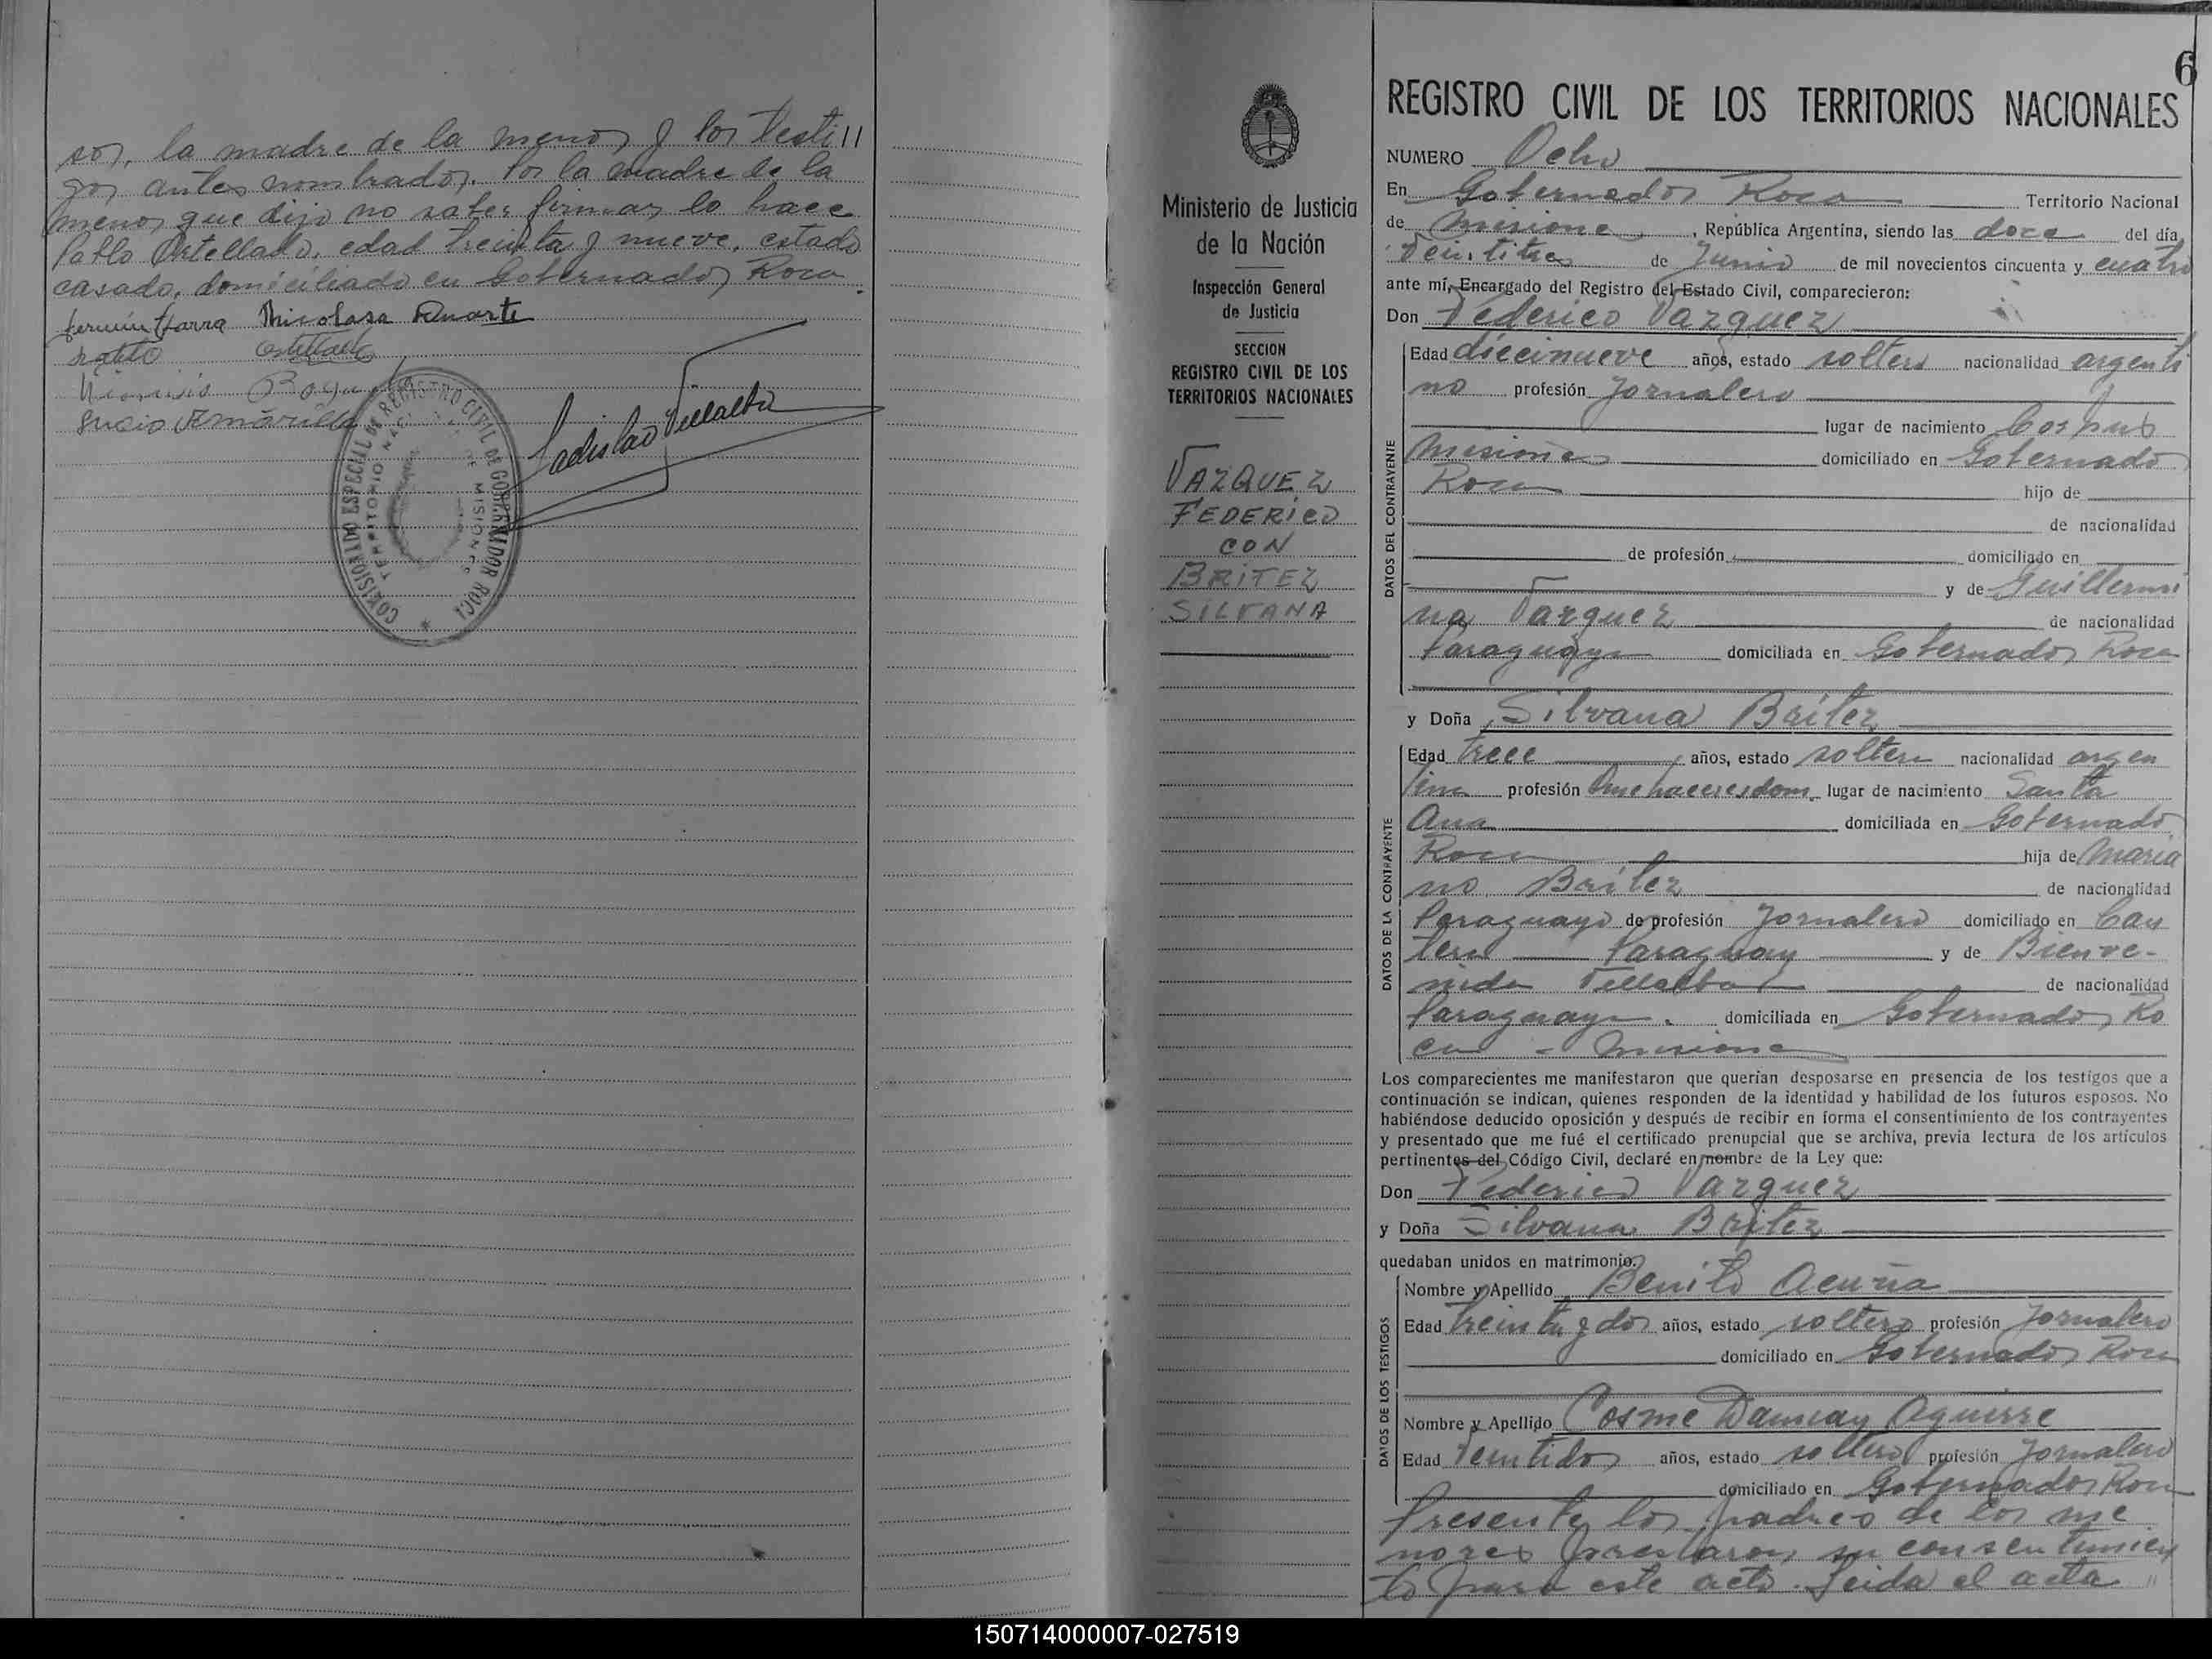 sos, la madre de la menor y los testi//
gos antes nombrados. Por la madre de la
menor que dijo no saber firmar lo hace
Pablo Ortellado, edad treinta y nueve, estado
casado, domiciliado en Gobernador Roca.
Nicolasa Duarte
Lucio Amarilla
Ladislao Villalba
COMISIONADO ESPECIAL DE REGISTRO CIVIL DE GOBERNADOR ROCA
TERRITORIO NACIONAL DE MISIONES
Ministerio de Justicia
de la Nación
Inspección General
de Justicia
SECCION
REGISTRO CIVIL DE LOS
TERRITORIOS NACIONALES
VAZQUEZ
FEDERICO
CON
BRITEZ
SILVANA
6
REGISTRO CIVIL DE LOS TERRITORIOS NACIONALES
NUMERO Ocho
En Gobernador Roca Territorio Nacional
de Misiones, República Argentina, siendo las doce del día
Veintitres de Junio de mil novecientos cincuenta y cuatro
ante mí, Encargado del Registro del Estado Civil, comparecieron:
Don Federico Vazquez
DATOS DEL CONTRAYENTE
Edad diecinueve años, estado soltero nacionalidad argenti
no profesión Jornalero
lugar de nacimiento Corpus
Misiones domiciliado en Gobernador
Roca hijo de
de nacionalidad
de profesión domiciliado en
y de Guillermi
na Vazquez de nacionalidad
Paraguaya domiciliada en Gobernador Roca
y Doña Silvana Britez
DATOS DE LA CONTRAYENTE
Edad trece años, estado soltera nacionalidad argen
tina profesión Quehaceres dom. lugar de nacimiento Santa
Ana domiciliada en Gobernador
Roca hija de Maria
no Britez de nacionalidad
Paraguayo de profesión Jornalero domiciliado en Can
tera Paraguay y de Bienve-
nida Villalba de nacionalidad
Paraguaya. domiciliada en Gobernador Ro
ca - Misiones
Los comparecientes me manifestaron que querían desposarse en presencia de los testigos que a
continuación se indican, quienes responden de la identidad y habilidad de los futuros esposos. No
habiéndose deducido oposición y después de recibir en forma el consentimiento de los contrayentes
y presentado que me fué el certificado prenupcial que se archiva, previa lectura de los artículos
pertinentes del Código Civil, declaré en nombre de la Ley que:
Don Federico Vazquez
y Doña Silvana Britez
quedaban unidos en matrimonio.
DATOS DE LOS TESTIGOS
Nombre y Apellido Benito Acuña
Edad treinta y dos años, estado soltero profesión Jornalero
domiciliado en Gobernador Roca
Nombre y Apellido Cosme Damian Aguirre
Edad Veintidos años, estado soltero profesión Jornalero
domiciliado en Gobernador Roca
Presente los padres de los me
nores prestaron su consentimien
to para este acto. Leida el acta //
150714000007-027519